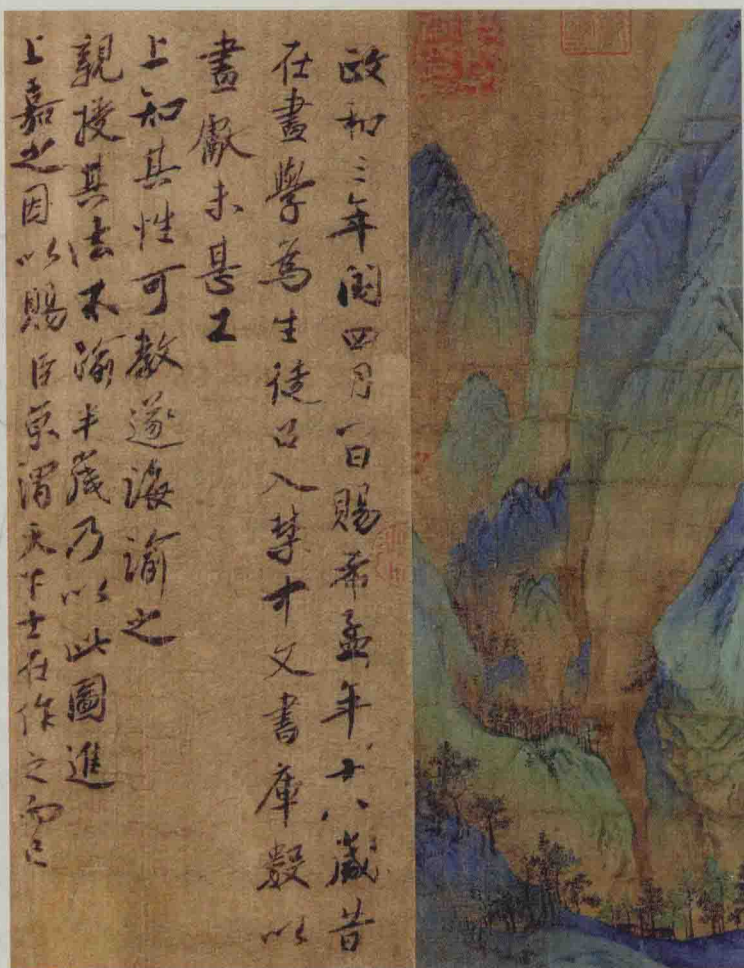 政和三年閏四月一日賜希孟年十八歲昔
在畫學為生徒召入禁中文書庫數以
畫獻未甚工
上知其性可教遂誨諭之
親授其法不踰半歲乃以此圖進
上嘉之因以賜臣京謂天下士在作之而已